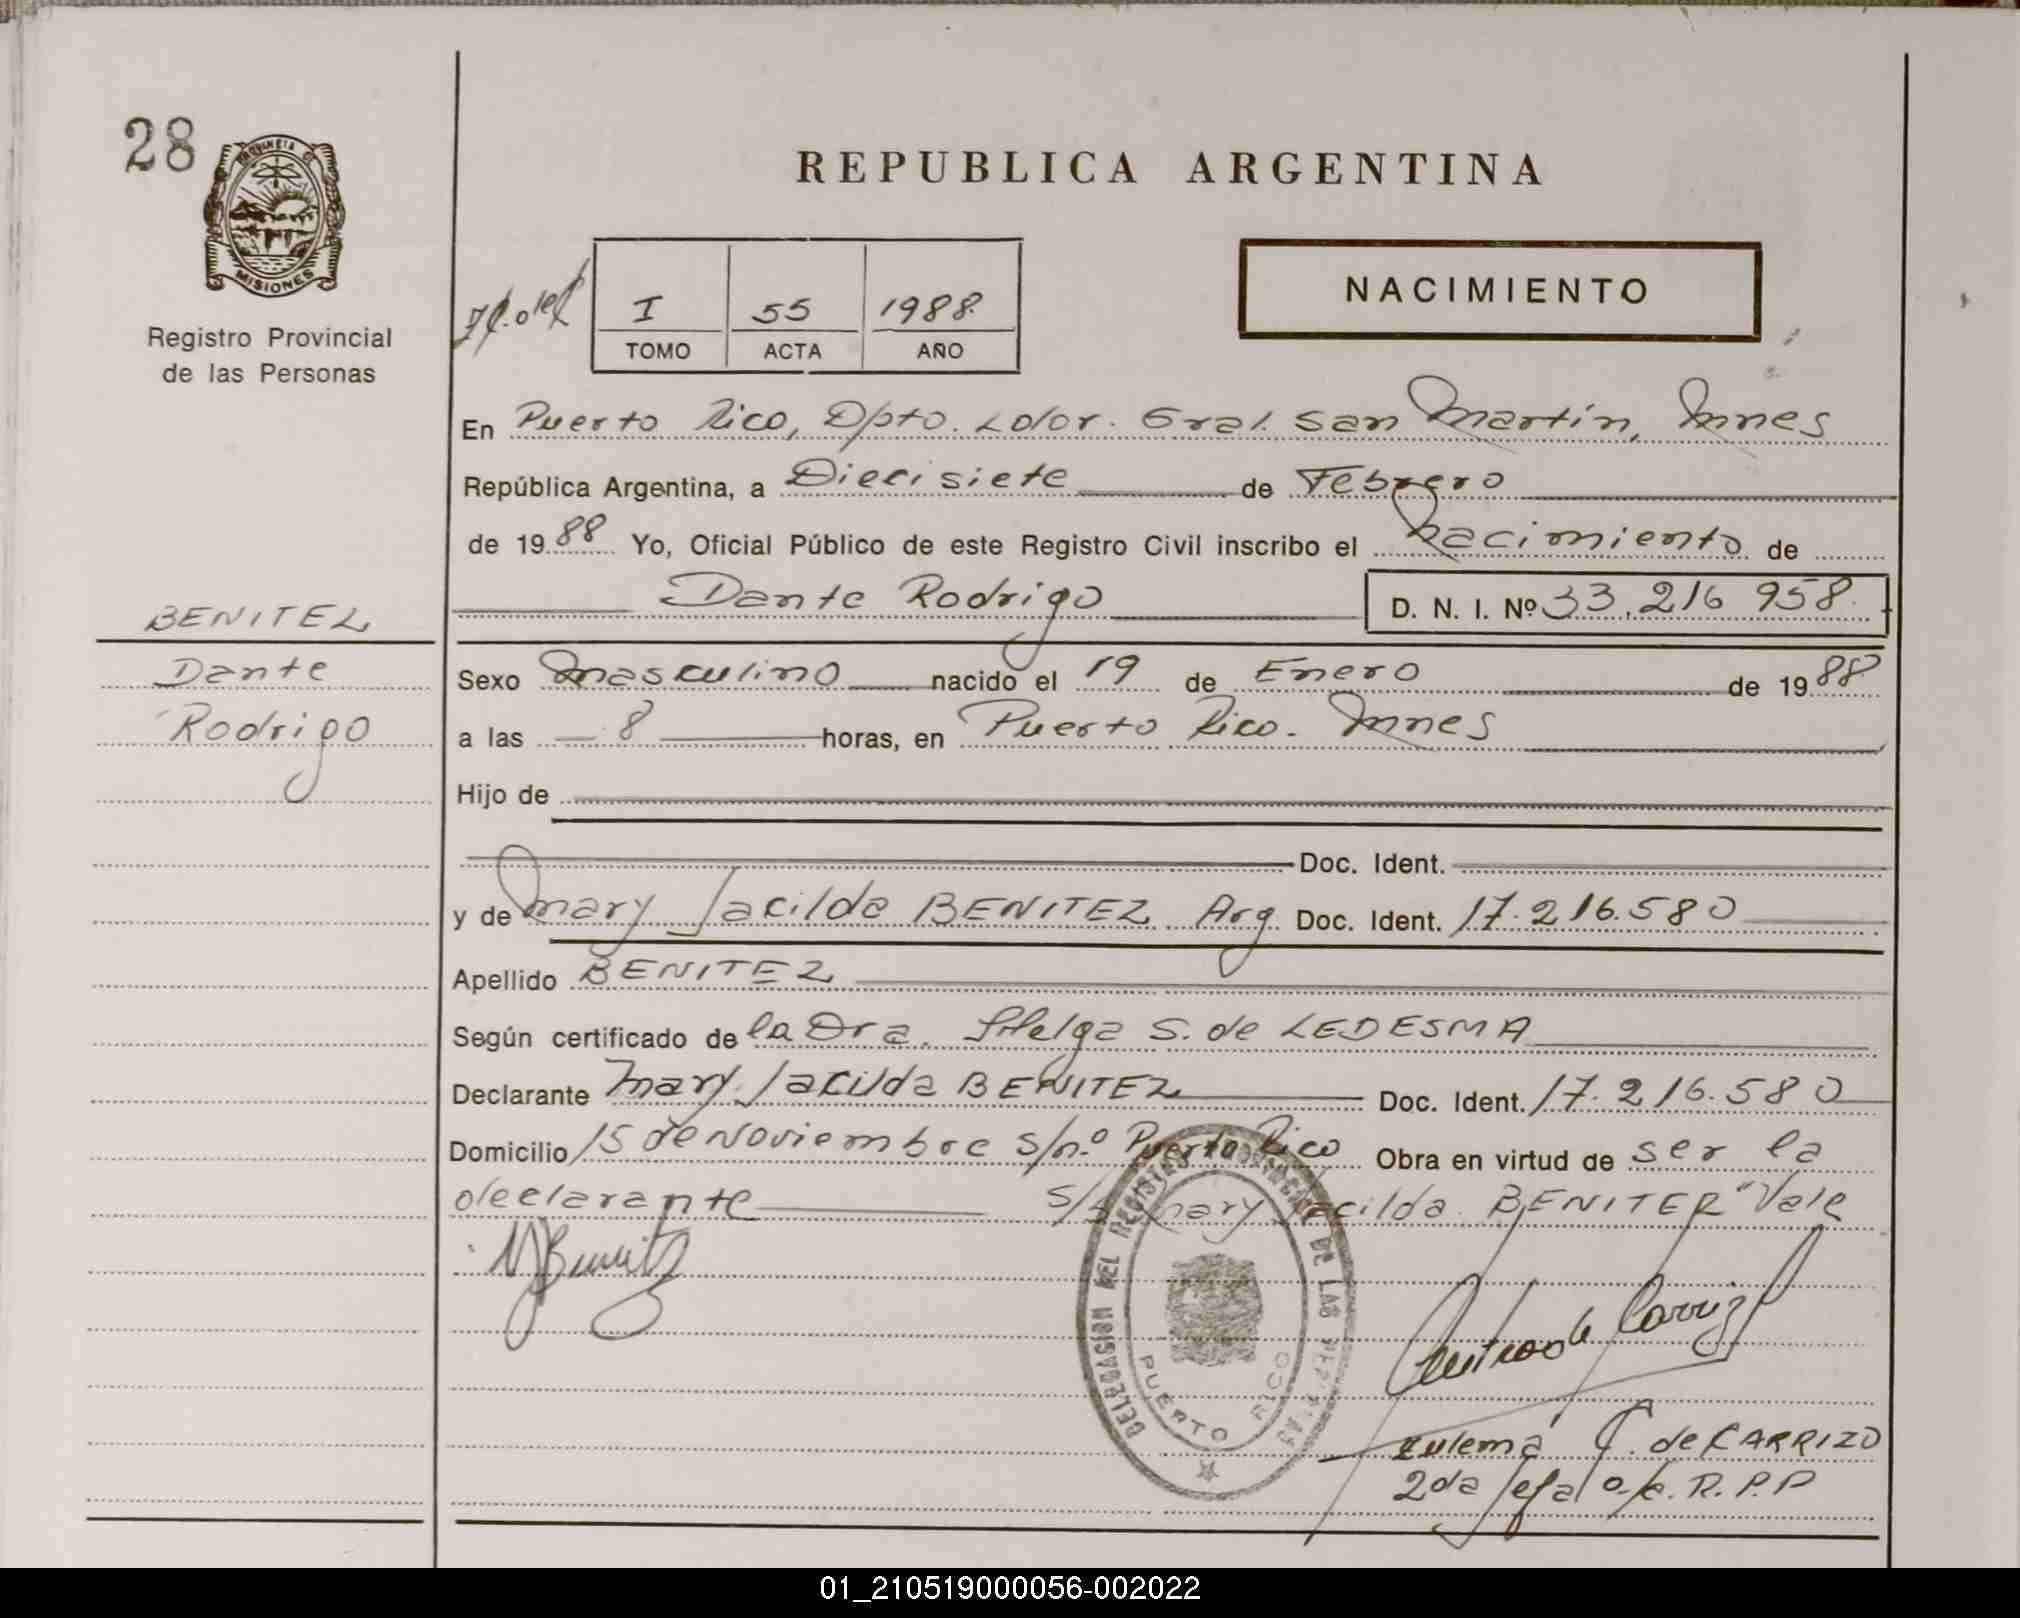 28
PROVINCIA DE
MISIONES
Registro Provincial
de las Personas
REPUBLICA ARGENTINA
I 55 1988
TOMO ACTA AÑO
NACIMIENTO
En Puerto Rico, Dpto. Ldor. Gral. San Martín, Mnes
República Argentina, a Diecisiete de Febrero
de 1988 Yo, Oficial Público de este Registro Civil inscribo el Nacimiento de
Dante Rodrigo D. N. I. Nº 33.216 958.
BENITEZ
Dante
Rodrigo
Sexo Masculino nacido el 19 de Enero de 1988
a las 8 horas, en Puerto Rico. Mnes
Hijo de
Doc. Ident.
y de Mary Jacilda BENITEZ Arg. Doc. Ident. 17.216.580
Apellido BENITEZ
Según certificado de la Dra. Helga S. de LEDESMA
Declarante Mary Jacilda BENITEZ Doc. Ident. 17.216.580
Domicilio 15 de Noviembre s/nº Puerto Rico Obra en virtud de ser la
declarante Mary Jacilda BENITEZ "Vale
DELEGACION DEL REGISTRO PROVINCIAL DE LAS PERSONAS
PUERTO RICO
Zulema C. de CARRIZO
2da Jefa R.P.P
01_210519000056-002022